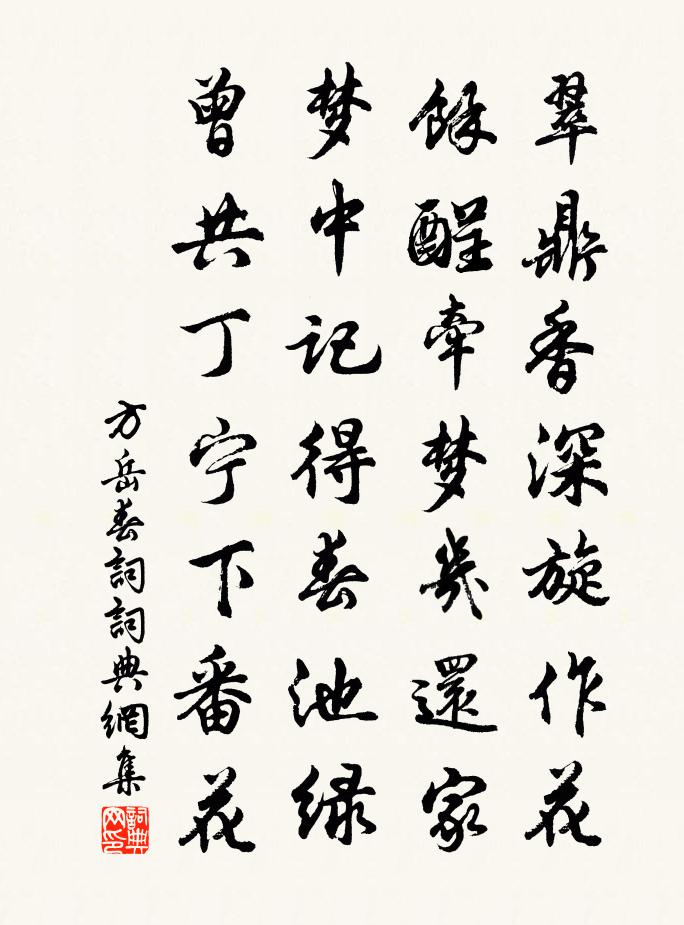 翠鼎香深旋作花
餘酲牽梦幾還家
梦中记得春池绿
曾共丁宁下番花
方岳春詞詞典網集
詞典网印